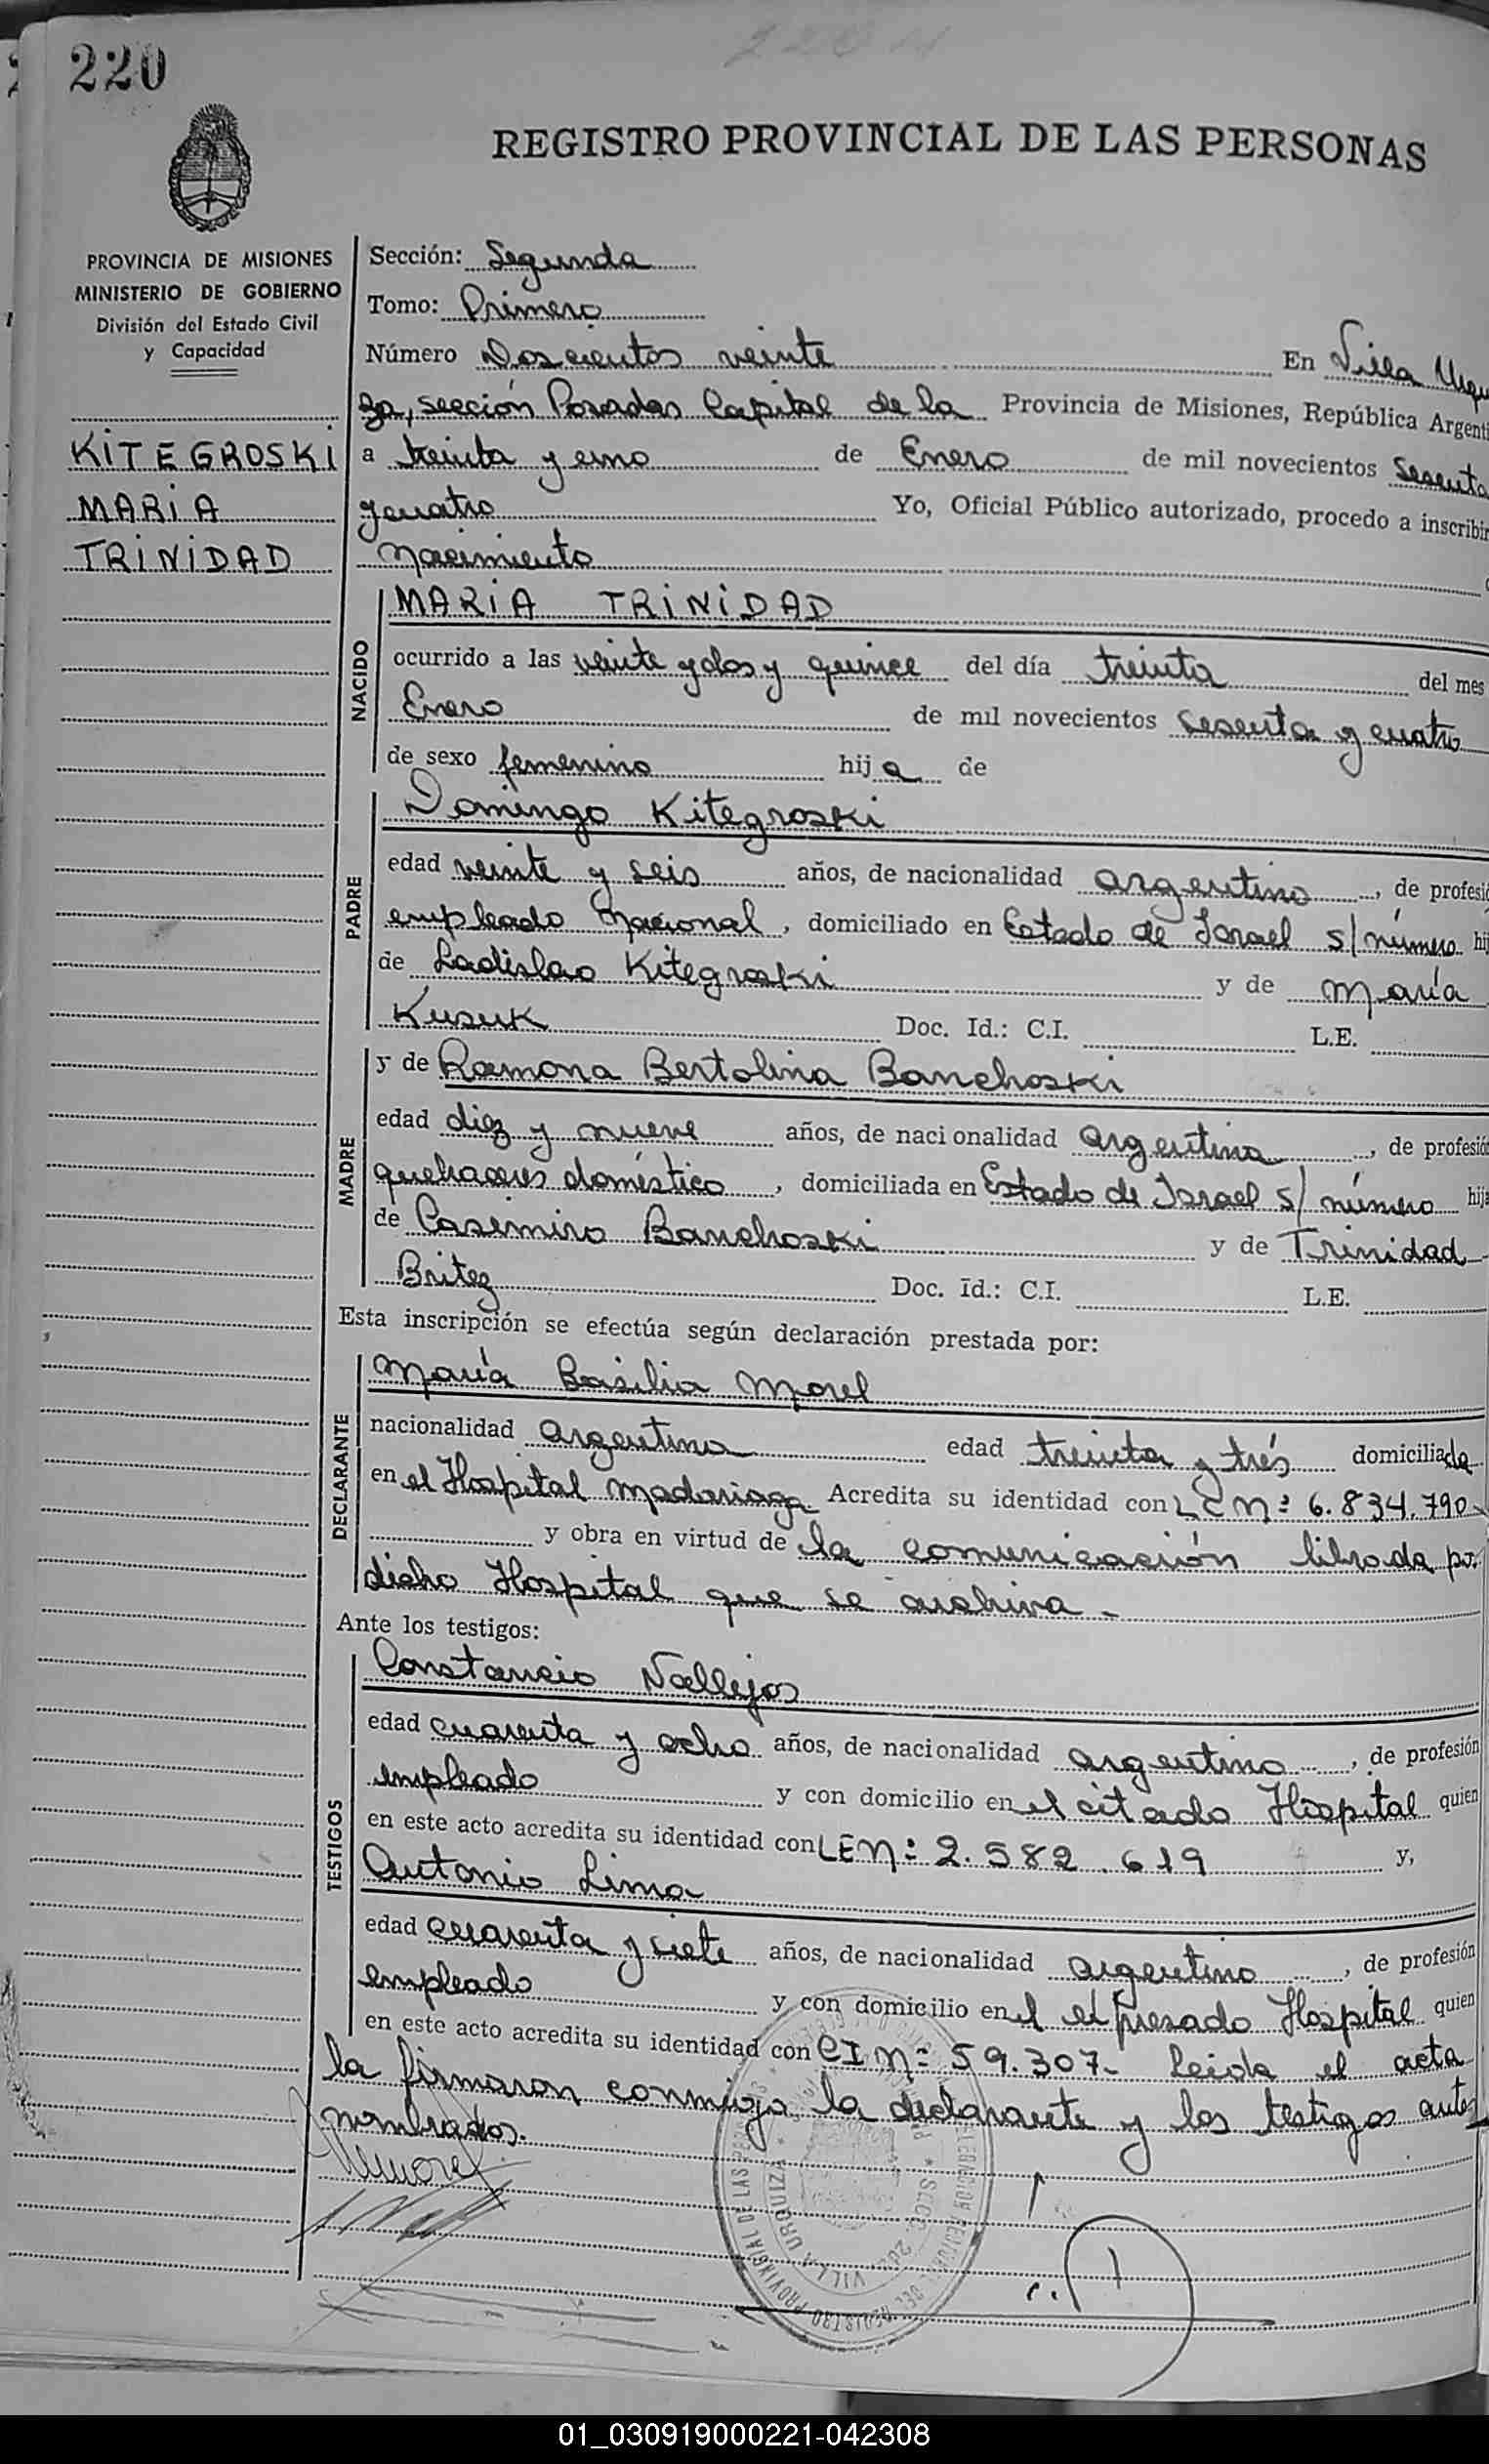 220
REGISTRO PROVINCIAL DE LAS PERSONAS
PROVINCIA DE MISIONES
MINISTERIO DE GOBIERNO
División del Estado Civil
y Capacidad
KITEGROSKI
MARIA
TRINIDAD
Sección: Segunda
Tomo: Primero
Número Doscientos veinte En Villa Urqui
za, sección Posadas Capital de la Provincia de Misiones, República Argenti
a treinta y uno de Enero de mil novecientos Sesenta
y cuatro Yo, Oficial Público autorizado, procedo a inscribir
Nacimiento
NACIDO
MARIA TRINIDAD
ocurrido a las veinte y dos y quince del día treinta del mes
Enero de mil novecientos sesenta y cuatro
de sexo femenino hija de
PADRE
Domingo Kitegroski
edad veinte y seis años, de nacionalidad argentino, de profesió
empleado Nacional, domiciliado en Estado de Israel s/número hij
de Ladislao Kitegroski y de María
Kusuk Doc. Id.: C.I. L.E.
MADRE
y de Ramona Bertolina Banchoski
edad diez y nueve años, de nacionalidad argentina, de profesió
quehaceres doméstico, domiciliada en Estado de Israel s/ número hija
de Casimiro Banchoski y de Trinidad
Britez Doc. Id.: C.I. L.E.
Esta inscripción se efectúa según declaración prestada por:
DECLARANTE
María Basilia Morel
nacionalidad argentina edad treinta y trés domiciliada
en el Hospital Madariaga. Acredita su identidad con LC Nº 6.834.790
y obra en virtud de la comunicación librada por
dicho Hospital que se archiva.-
Ante los testigos:
TESTIGOS
Constancio Vallejos
edad cuarenta y ocho años, de nacionalidad argentino, de profesión
empleado y con domicilio en el citado Hospital quien
en este acto acredita su identidad con LE Nº 2.582.619 y,
Antonio Lima
edad cuarenta y siete años, de nacionalidad argentino, de profesión
empleado y con domicilio en el expresado Hospital quien
en este acto acredita su identidad con CI Nº 59.307- Leida el acta
la firmaron conmigo, la declarante y los testigos antes
nombrados.
MMorel
VILLA URQUIZA
01_030919000221-042308